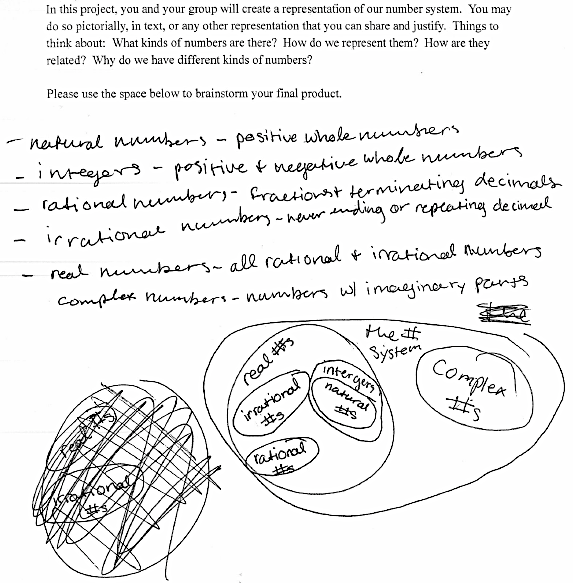 In this project, you and your group will create a representation of our number system. You may
do so pictorially, in text, or any other representation that you can share and justify. Things to
think about: What kinds of numbers are there? How do we represent them? How are they
related? Why do we have different kinds of numbers?
Please use the space below to brainstorm your final product.
- natural numbers - positive whole numbers
- integers - positive & negative whole numbers
- rational numbers - fractions & terminating decimals
- irrational numbers - never ending or repeating decimal
- real numbers - all rational & irrational numbers
complex numbers - numbers w/ imaginary parts
the #
system
real #s
intergers
natural
#s
irrational
#s
rational
#s
Complex
#s
real #s
irrational
#s